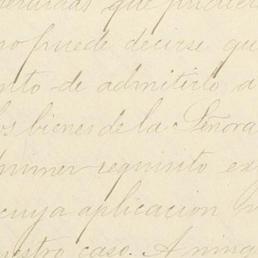 que pudier
no puede decirse qu
nto de admitirlo, a
los bienes de la Señora
primer requisito ex
cuya aplicacion
nuestro caso. A ning